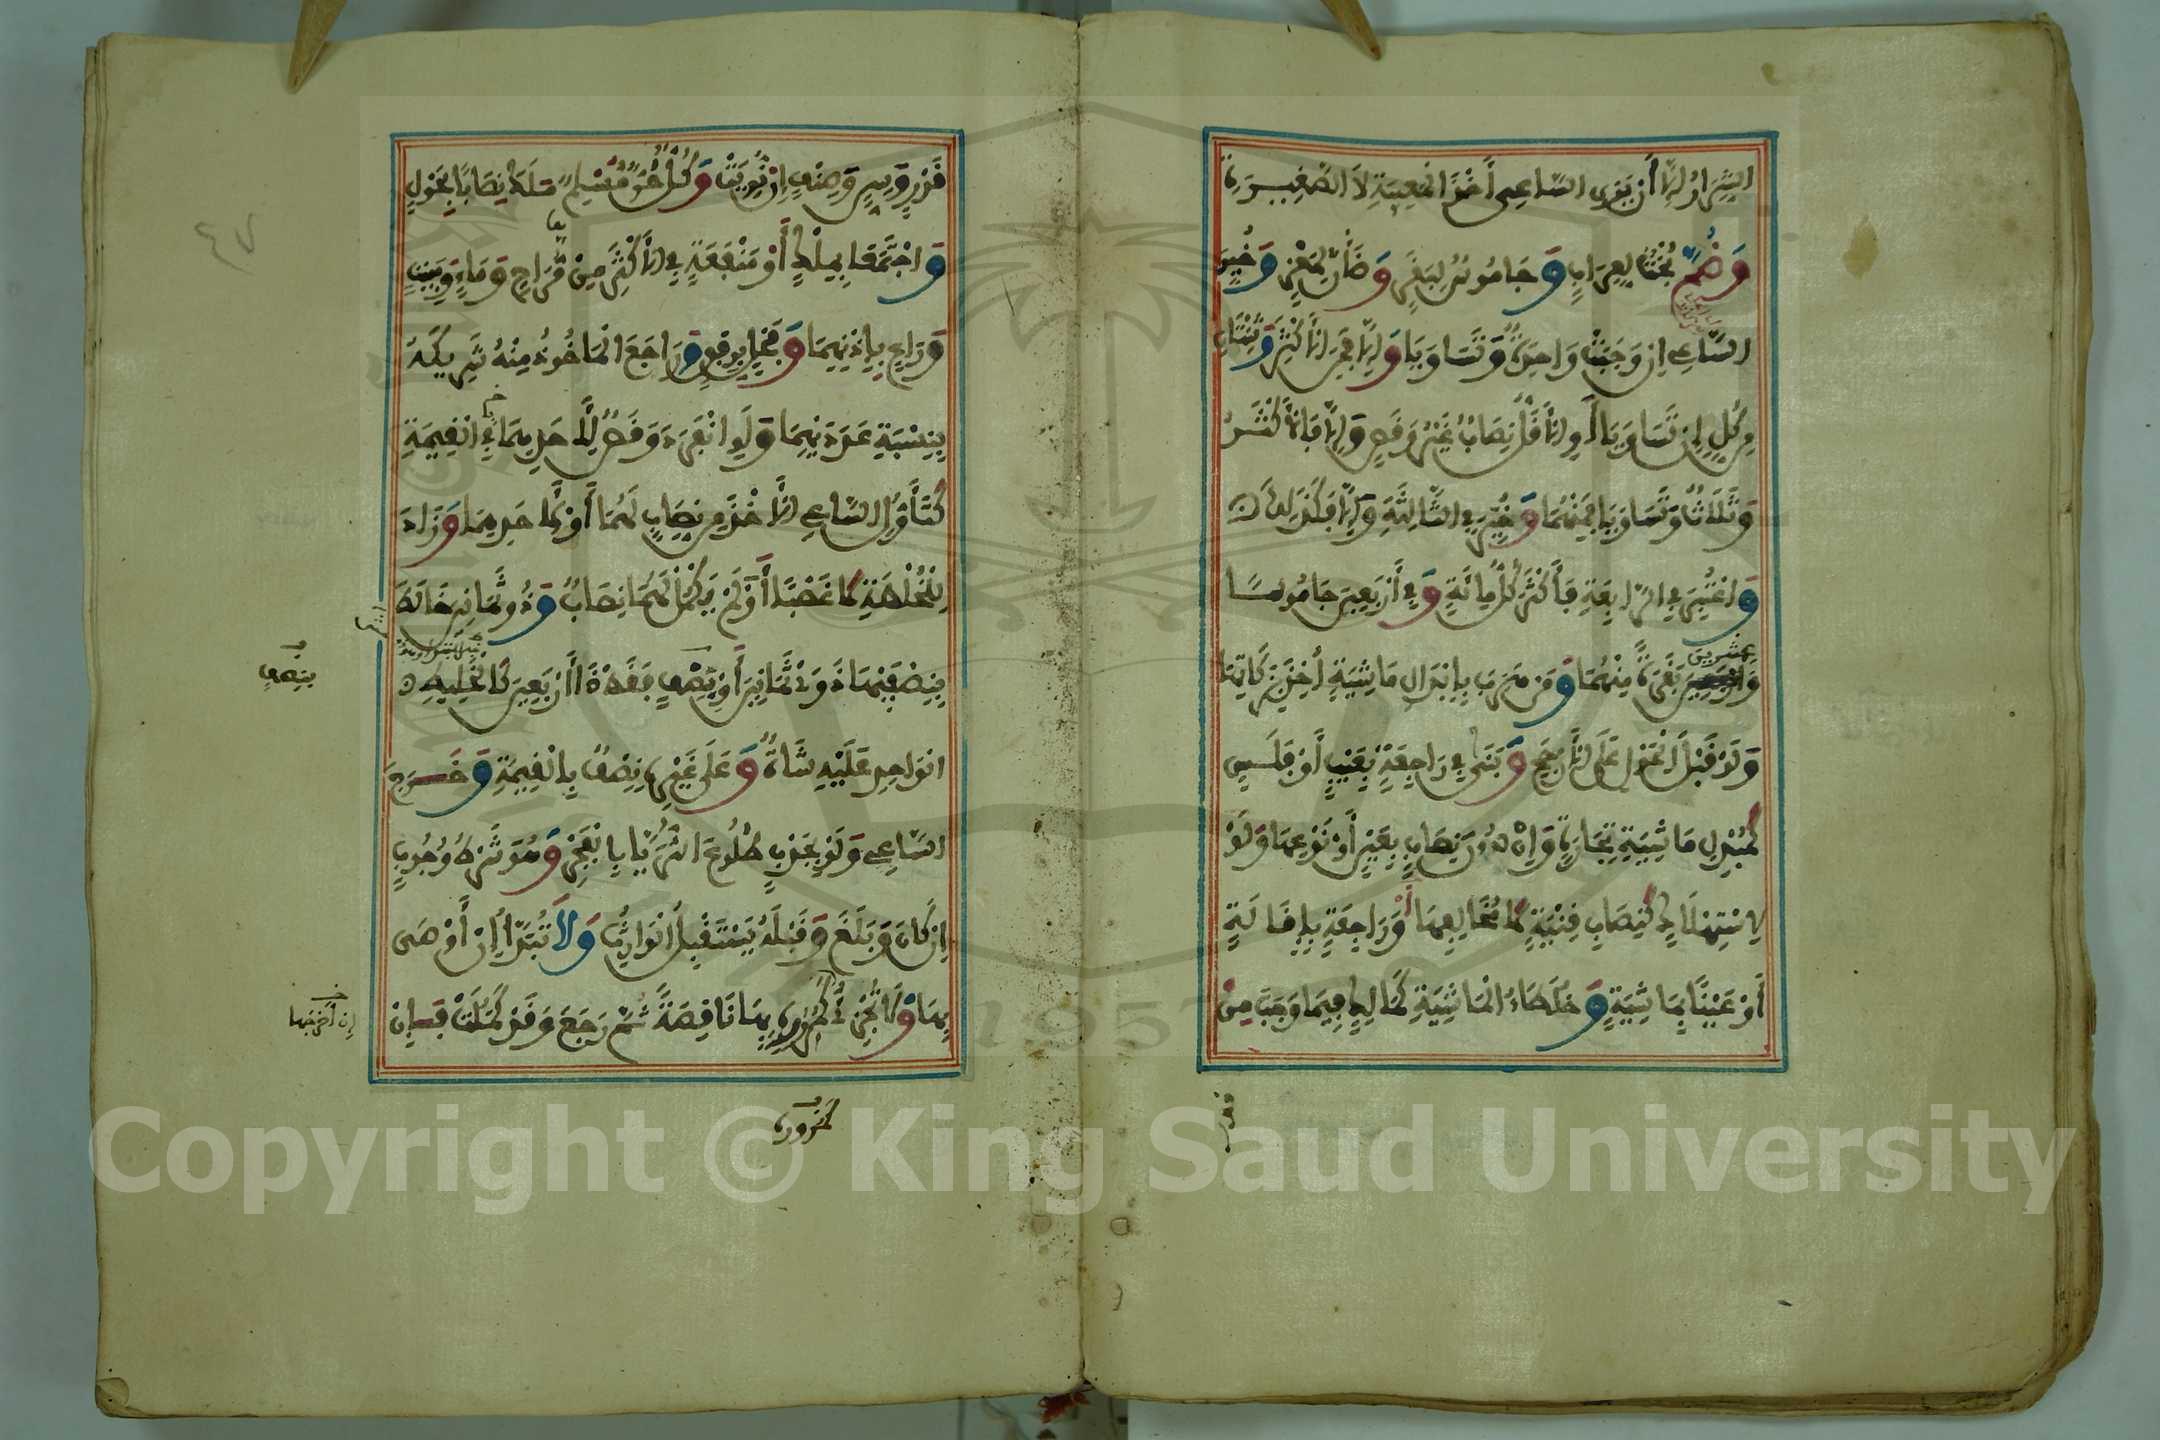 الشِّرَارُ إِلَّا أَنْ يَرَى السَّاعِي أَخْذَ الْمَعِيبَةِ لَا الصَّغِيرَةِ
وَضُمَّ بُخْتٌ لِعِرَابٍ وَجَامُوسٌ لِبَقَرٍ وَضَأْنٌ لِمَعْزٍ وَخُيِّرَ
السَّاعِي إِنْ وَجَبَتْ وَاحِدَةٌ وَتَسَاوَيَا وَإِلَّا فَمِنَ الْأَكْثَرِ وَثِنْتَانِ
مِنْ كُلٍّ إِنْ تَسَاوَيَا أَوِ الْأَقَلُّ نِصَابٌ غَيْرُ وَقَصٍ وَإِلَّا فَالْأَكْثَرُ
وَثَلَاثٌ وَتَسَاوَيَا فَمِنْهُمَا وَخُيِّرَ فِي الثَّالِثَةِ وَإِلَّا فَكَذَلِكَ
وَاعْتُبِرَ فِي الرَّابِعَةِ فَأَكْثَرَ كُلُّ مِائَةٍ وَفِي أَرْبَعِينَ جَامُوسًا
وَعِشْرِينَ بَقَرَةً مِنْهُمَا وَمَنْ هَرَبَ بِإِبْدَالِ مَاشِيَةٍ أُخِذَ بِزَكَاتِهَا
وَلَوْ قَبْلَ الْحَوْلِ عَلَى الْأَرْجَحِ وَبَنَى فِي رَاجِعَةٍ بِعَيْبٍ أَوْ فَلَسٍ
كَمُبْدِلِ مَاشِيَةِ تِجَارَةٍ وَإِنْ دُونَ نِصَابٍ بِعَيْنٍ أَوْ نَوْعِهَا وَلَوْ
لِاسْتِهْلَاكٍ كَنِصَابِ قِنْيَةٍ لَا مُخَالِفِهَا أَوْ رَاجِعَةٍ بِإِقَالَةٍ
أَوْ عَيْنًا بِمَاشِيَةٍ وَخُلَطَاءُ الْمَاشِيَةِ كَمَالِكٍ فِيمَا وَجَبَ مِنْ
قدر
قَدْرٍ وَسِنٍّ وَصِنْفٍ إِنْ نُوِيَتْ وَكُلٌّ حُرٌّ مُسْلِمٌ مَلَكَ نِصَابًا بِحَوْلٍ
وَاجْتَمَعَا بِمِلْكٍ أَوْ مَنْفَعَةٍ فِي الْأَكْثَرِ مِنْ مُرَاحٍ وَمَاءٍ وَمَبِيتٍ
وَرَاعٍ بِإِذْنِهِمَا وَفَحْلٍ بِرِفْقٍ وَرَاجَعَ الْمَأْخُوذُ مِنْهُ شَرِيكَهُ
بِنِسْبَةِ عَدَدَيْهِمَا وَلَوِ انْفَرَدَ وَقَصٌ لِأَحَدِهِمَا فِي الْقِيمَةِ
كَتَأَوُّلِ السَّاعِي الْأَخْذَ مِنْ نِصَابٍ لَهُمَا أَوْ لِأَحَدِهِمَا وَزَادَ
لِلْخُلْطَةِ لَا غَصْبًا أَوْ لَمْ يَكْمُلْ لَهُمَا نِصَابٌ وَذُو ثَمَانِينَ خَالَطَ
بِنِصْفَيْهِمَا ذَوَيْ ثَمَانِينَ أَوْ بِنِصْفٍ فَقَطْ ذَا أَرْبَعِينَ كَالْخَلِيطِ
الْوَاحِدِ عَلَيْهِ شَاةٌ وَعَلَى غَيْرِهِ نِصْفٌ بِالْقِيمَةِ وَخَرَجَ
السَّاعِي وَلَوْ بِجَدْبٍ طُلُوعَ الثُّرَيَّا بِالْفَجْرِ وَهُوَ شَرْطُ وُجُوبٍ
إِنْ كَانَ وَبَلَغَ وَقَبْلَهُ يَسْتَقْبِلُ الْوَارِثُ وَلَا تُبَدَّأُ إِنْ أَوْصَى
بِهَا وَلَا تُجْزِئُ كَمُرُورِهِ بِهَا نَاقِصَةً ثُمَّ رَجَعَ وَقَدْ كَمُلَتْ فَإِنْ
بنصف
إن أخرجها
كمروره
٤٧
Copyright © King Saud University
1957